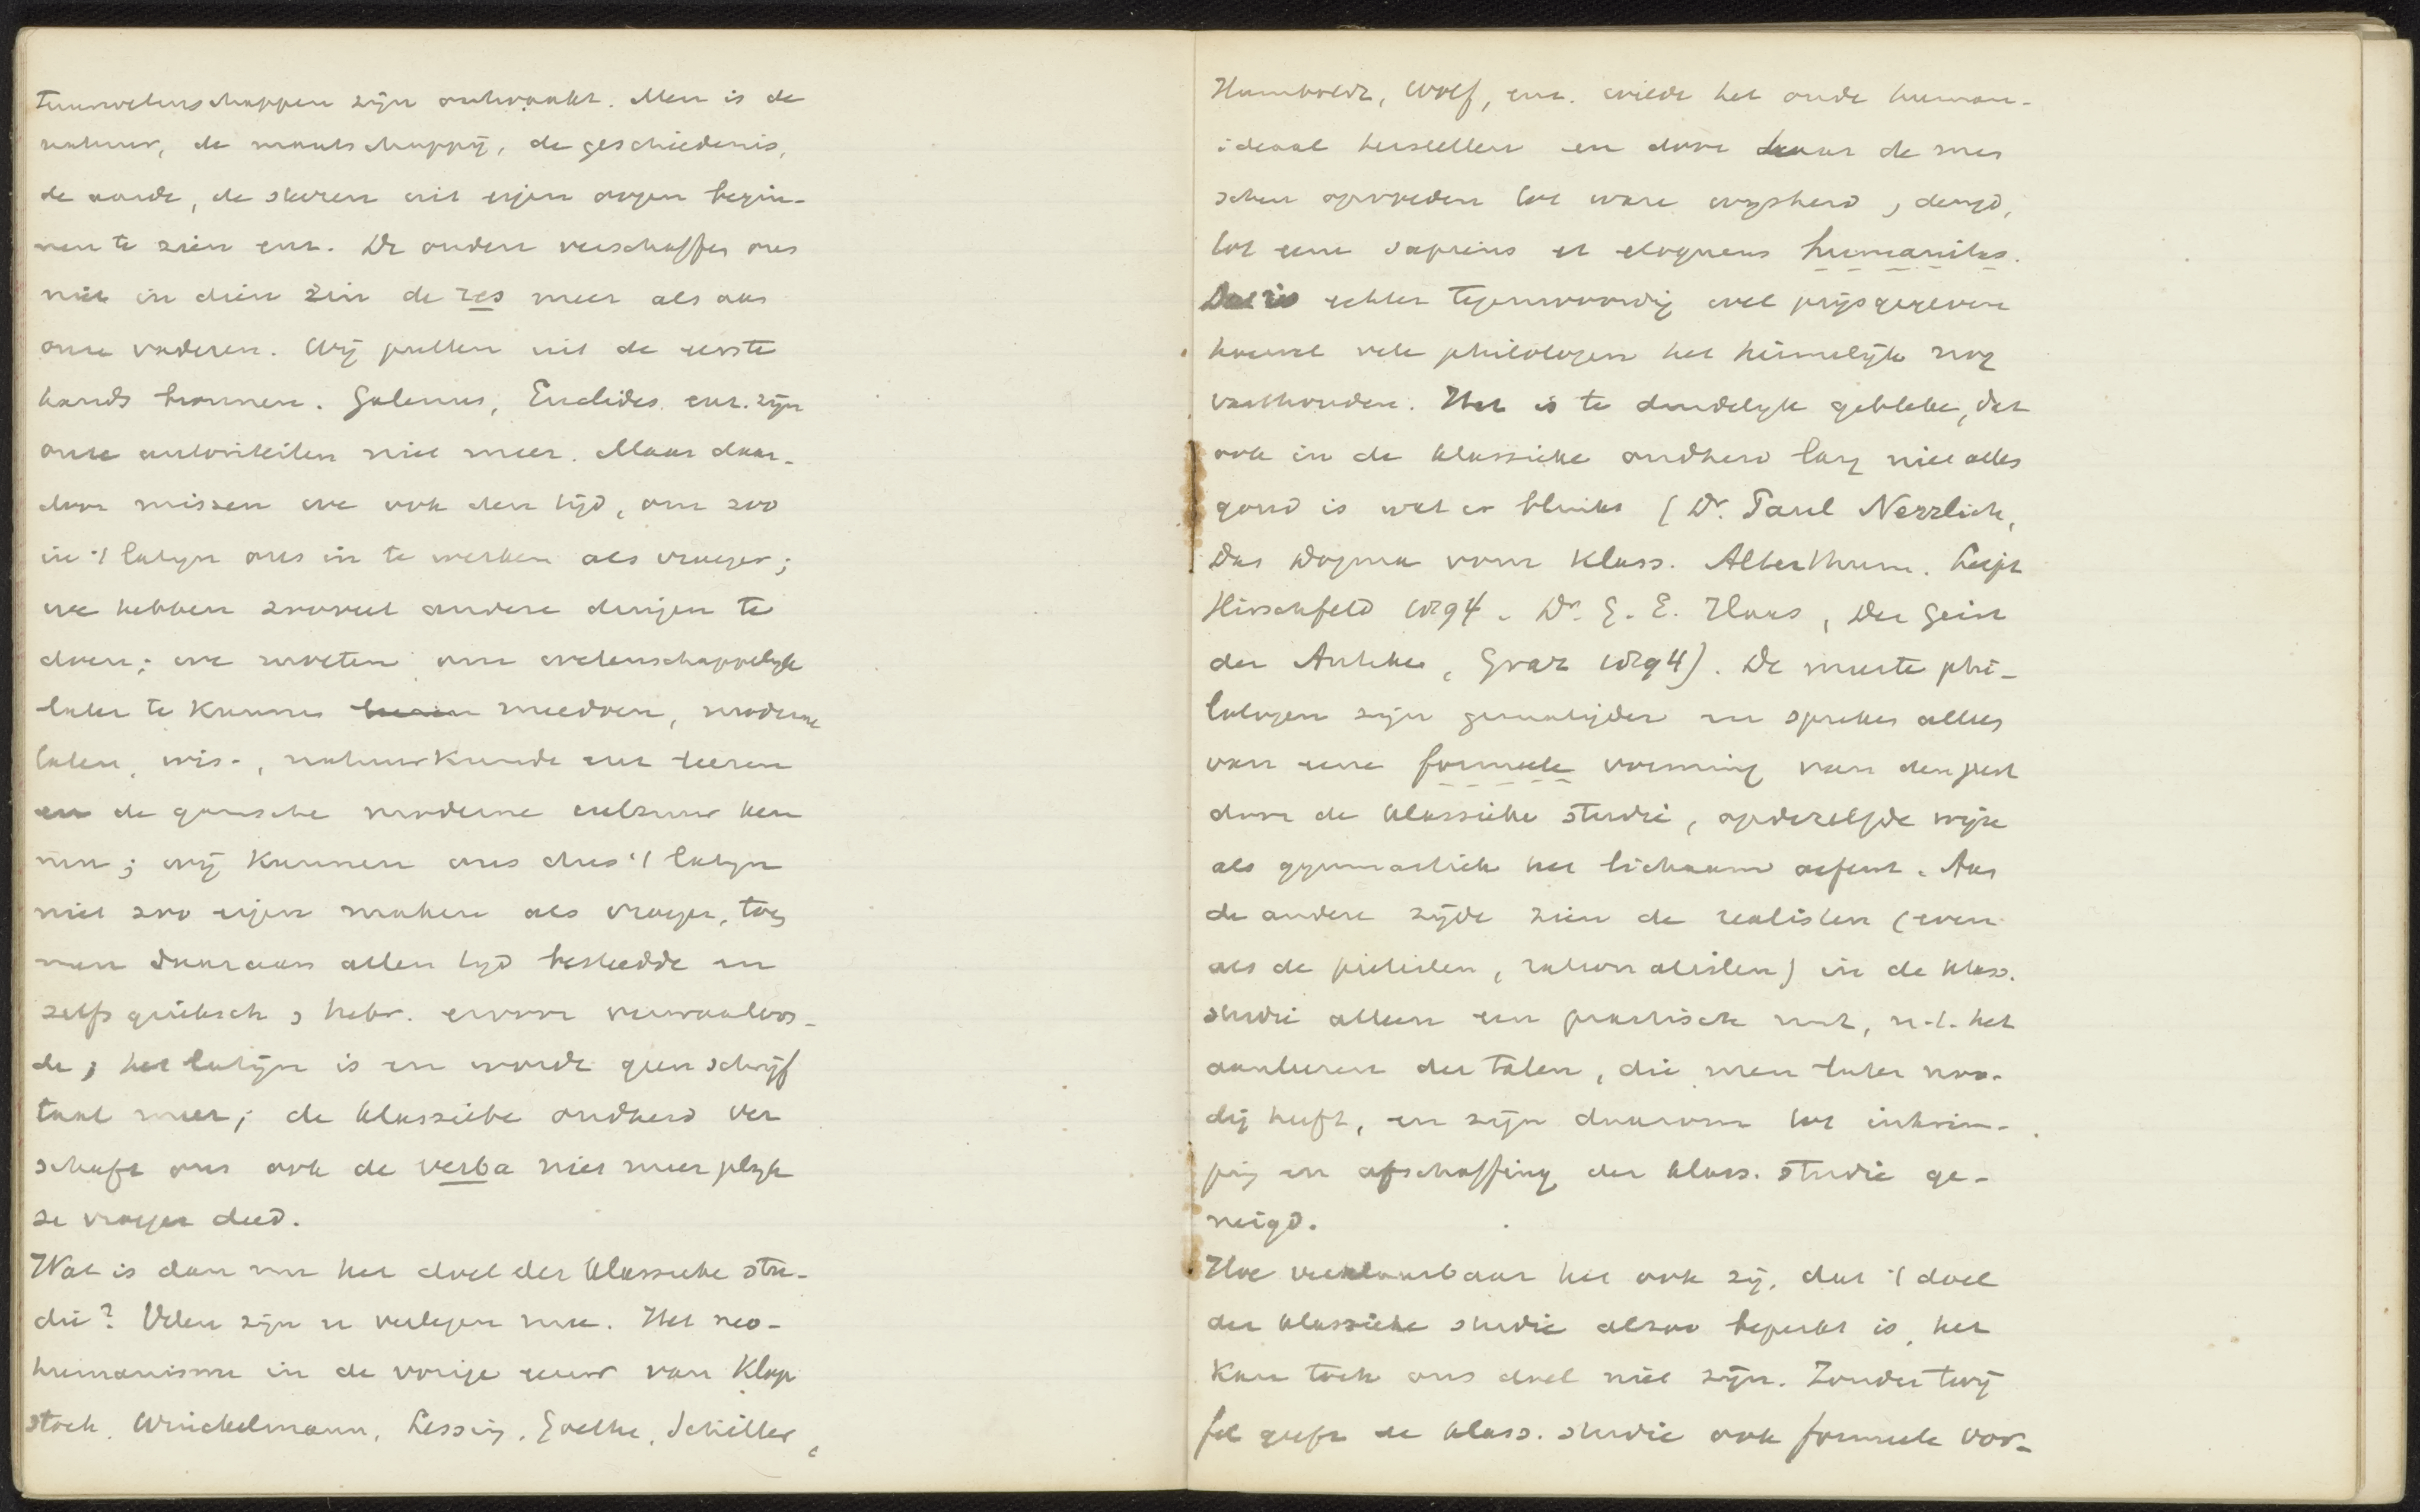 tuurwetenschappen zijn ontwaakt. Men is de
natuur, de maatschappij, de geschiedenis,
de aarde, de sterren uit eigen oogen begin-
nen te zien enz. De ouden verschaffen ons
niet in dien zin de res meer als aan
onze vaderen. Wij putten uit de eerste
hands bronnen. Galenus, Euclides enz. zijn
onze autoriteiten niet meer. Maar daar-
door missen we ook den tijd, om zoo
in 't latijn ons in te werken als vroeger;
we hebben zooveel andere dingen te
doen; we moeten om wetenschappelijk
later te kunnen leeren meedoen, moderne
talen, wis-, natuurkunde enz leeren
en de gansche moderne cultuur ken
nen; wij kunnen ons dus 't latijn
niet zoo eigen maken als vroeger, toen
men daaraan allen tijd besteedde en
zelfs grieksch, hebr. ervoor verwaarloos-
de; het latijn is en wordt geen schrijf
taal meer; de klassieke oudheid ver
schaft ons ook de verba niet meer gelijk
ze vroeger deed.
Wat is dan nu het doel der klassieke stu-
die? Velen zijn er verlegen mee. Het neo-
humanisme in de vorige eeuw van Klop
stock, Winckelmann, Lessing, Goethe, Schiller,
Humboldt, Wolf, enz. wilde het oude human-
ideaal herstellen en door haar de men
schen opvoeden tot ware wijsheid, deugd,
tot eene sapiens et eloquens humanitas.
Dat is echter tegenwoordig wel prijsgegeven
hoewel vele philologen het heimelijk nog
vasthouden. Het is te duidelijk gebleken, dat
ook in de klassieke oudheid lang niet alles
goud is wat er blinkt (Dr. Paul Nerrlich,
Das Dogma vom klass. Alterthum. Leipz
Hirschfeld 1894. Dr. G. E. Haas, Der Geist
der Antike, Graz 1894). De meeste phi-
lologen zijn gematigder en spreken alleen
van eene formeele vorming van den geest
door de klassieke studie, op dezelfde wijze
als gymnastiek het lichaam oefent. Aan
de andere zijde zien de realisten (even
als de pietisten, rationalisten) in de klass.
studie alleen een praktisch nut, n.l. het
aanleeren der talen, die men later noo-
dig heeft, en zijn daarom tot inkrim-
ping en afschaffing der klass. studie ge-
neigd.
Hoe verklaarbaar het ook zij, dat 't doel
der klassieke studie alzoo beperkt is, het
kan toch ons doel niet zijn. Zonder twij
fel geeft de klass. studie ook formeele vor-